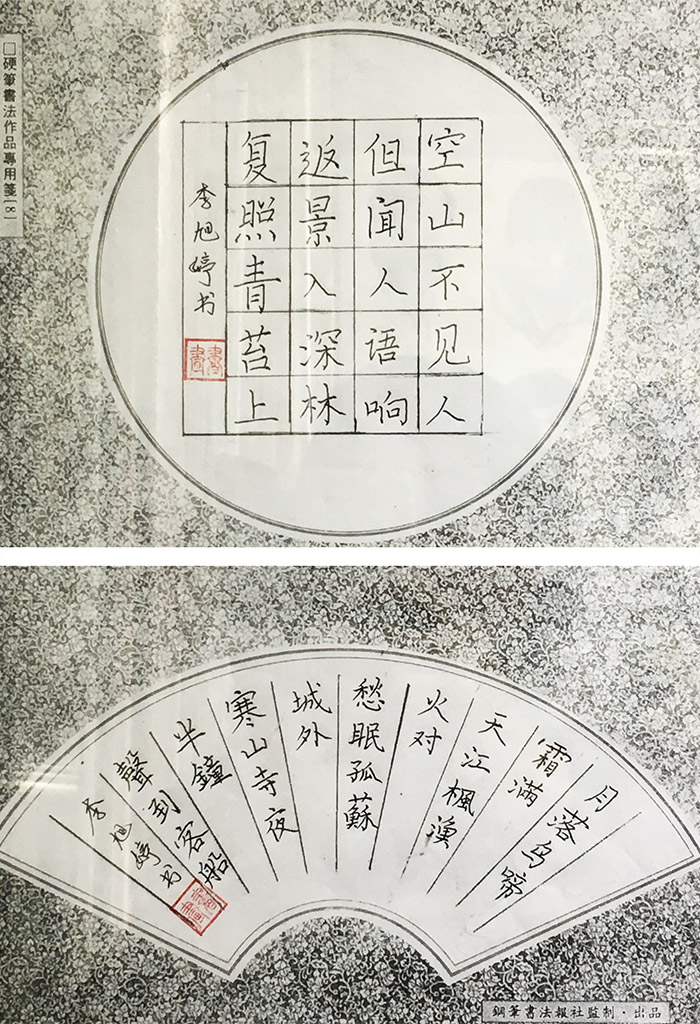 硬筆書法作品專用箋[8]
空山不见人
但闻人语响
返景入深林
复照青苔上
李旭婷书
月落乌蹄
霜滿
天江楓漁
火对
愁眠孤蘇
城外
寒山寺夜
半鐘
聲到客船
李旭婷书
鋼筆書法報社監制·出品